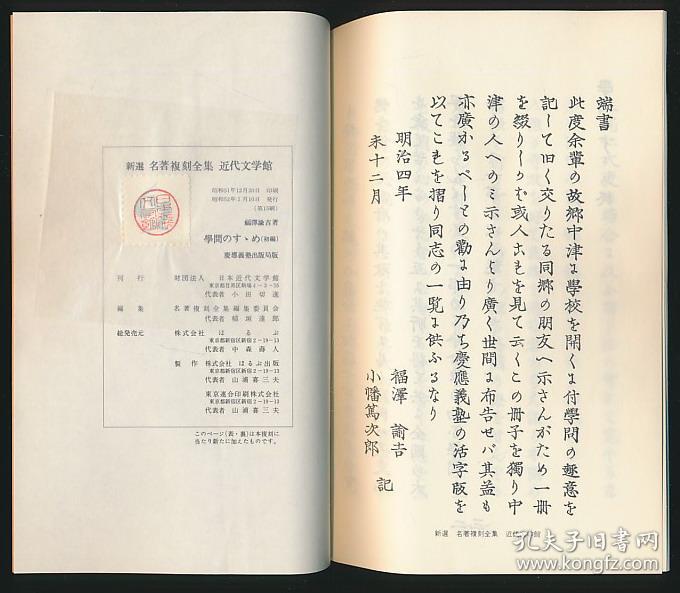 端書
此度余輩の故郷中津に學校を開くに付學問の趣意を
記して旧く交りたる同郷の朋友へ示さんがため一冊
を綴りしかば或人これを見て云くこの冊子を獨り中
津の人へのミ示さんより廣く世間に布告せバ其益も
亦廣かるべしとの勸に由り乃ち慶應義塾の活字版を
以てこれを摺り同志の一覧に供ふるなり
明治四年
未十二月
福澤 諭吉
小幡篤次郎 記
新選 名著複刻全集 近代文学館
新選 名著複刻全集 近代文学館
昭和51年12月20日 印刷
昭和52年1月10日 発行
(第15刷)
福澤諭吉著
學問のすゝめ(初編)
慶應義塾出版局版
刊行 財団法人 日本近代文学館
東京都目黒区駒場4-3-55
代表者 小田切進
編集 名著複刻全集編集委員会
代表者 稲垣達郎
総発売元 株式会社 ほるぷ
東京都新宿区新宿2-19-13
代表者 中森蒔人
製作 株式会社 ほるぷ出版
東京都新宿区新宿2-19-13
代表者 山浦喜三夫
東京連合印刷株式会社
東京都新宿区新宿2-19-13
代表者 山浦喜三夫
このページ(表・裏)は本複刻に
当たり新たに加えたものです。
孔夫子旧书网